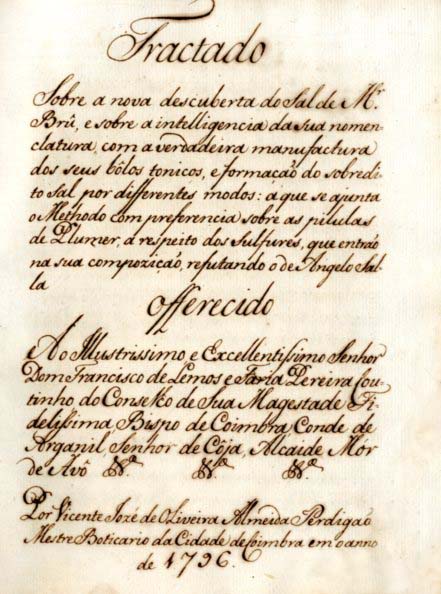 Tractado
Sobre a nova descuberta do Sal de Mr.
Brû, e sobre a intelligencia da sua nomen-
clatura, com a verdadeira manufactura
dos seus bôlos tonicos, e formação do sobredi-
to Sal por differentes modos: a que se ajunta
o Methodo com preferencia sobre as pilulas
de Plumer, a respeito dos Sulfures, que entrão
na sua compozição, refutando o de Angelo Sal-
la
Offerecido
Ao Illustrissimo e Excellentissimo Senhor
Dom Francisco de Lemos e Faria Pereira Cou-
tinho do Conselho de Sua Magestade Fi-
delissima Bispo de Coimbra Conde de
Arganil, Senhor de Côja, Alcaide Mór
de Avô &a. &a. &a.
Por Vicente Jozé de Oliveira Almeida Perdigaõ
Mestre Boticario da Cidade de Coimbra em o anno
de 1796.